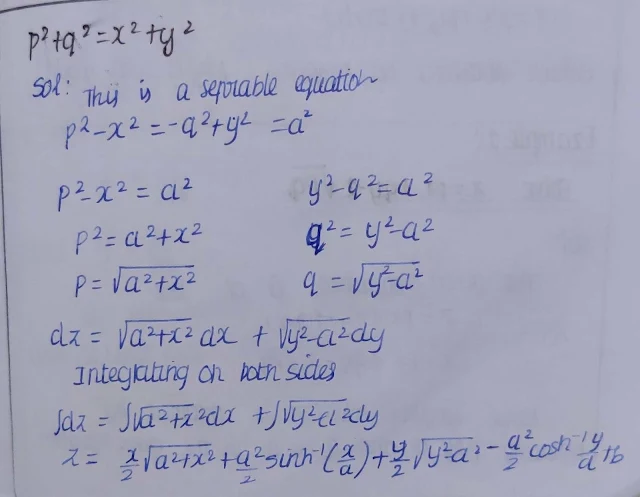 p²+q²=x²+y²
Sol: This is a seprable equation
p²-x²=-q²+y² =a²
p²-x²=a² y²-q²=a²
p²=a²+x² q²=y²-a²
p=√a²+x² q=√y²-a²
dz=√a²+x² dx +√y²-a² dy
Integrating on both sides
∫dz=∫√a²+x² dx +∫√y²-a² dy
z= x/2 √a²+x² + a²/2 sinh⁻¹(x/a)+ y/2 √y²-a² - a²/2 cosh⁻¹ y/a +b